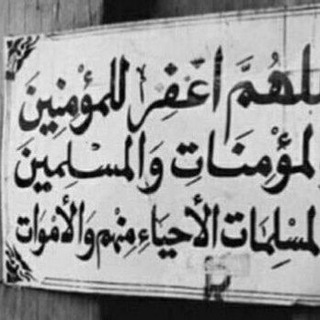 للهُمَّ اغفِر للمُؤْمِنِينَ
لمؤْمِنَاتِ وَالمسْلمِينَ
لمسْلِمَات الأحيَاءِ مِنهُم وَالأموَات